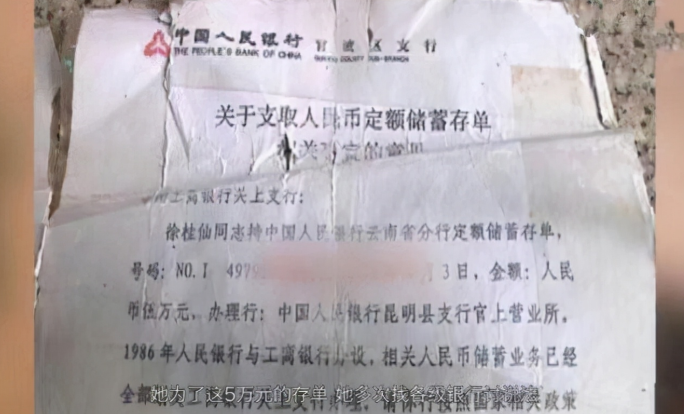 中国人民银行 官渡区支行
THE PEOPLE'S BANK OF CHINA
关于支取人民币定额储蓄存单
工商银行关上支行：
徐桂仙同志持中国人民银行云南省分行定额储蓄存单，
号码：NO.I 497 3日，金额：人民
币伍万元，办理行：中国人民银行昆明县支行官上营业所。
1986年人民银行与工商银行分设，相关人民币储蓄业务已经
全部
她为了这5万元的存单 她多次找各级银行讨说法